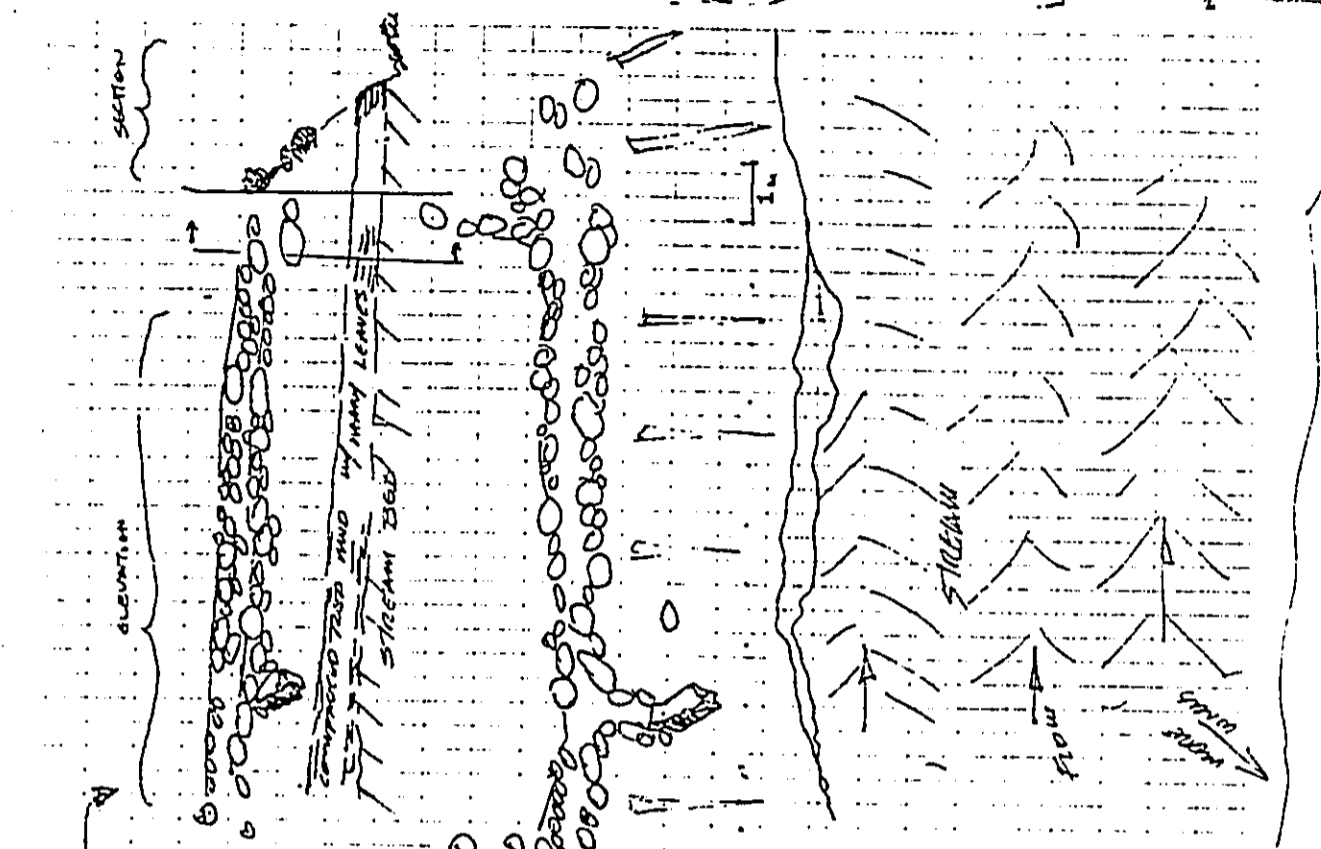 SECTION
ELEVATION
COMPACTED TR50 MUD w/ MANY LEAVES
STREAM BED
1 m
STREAM
FLOW
MORE WINDS